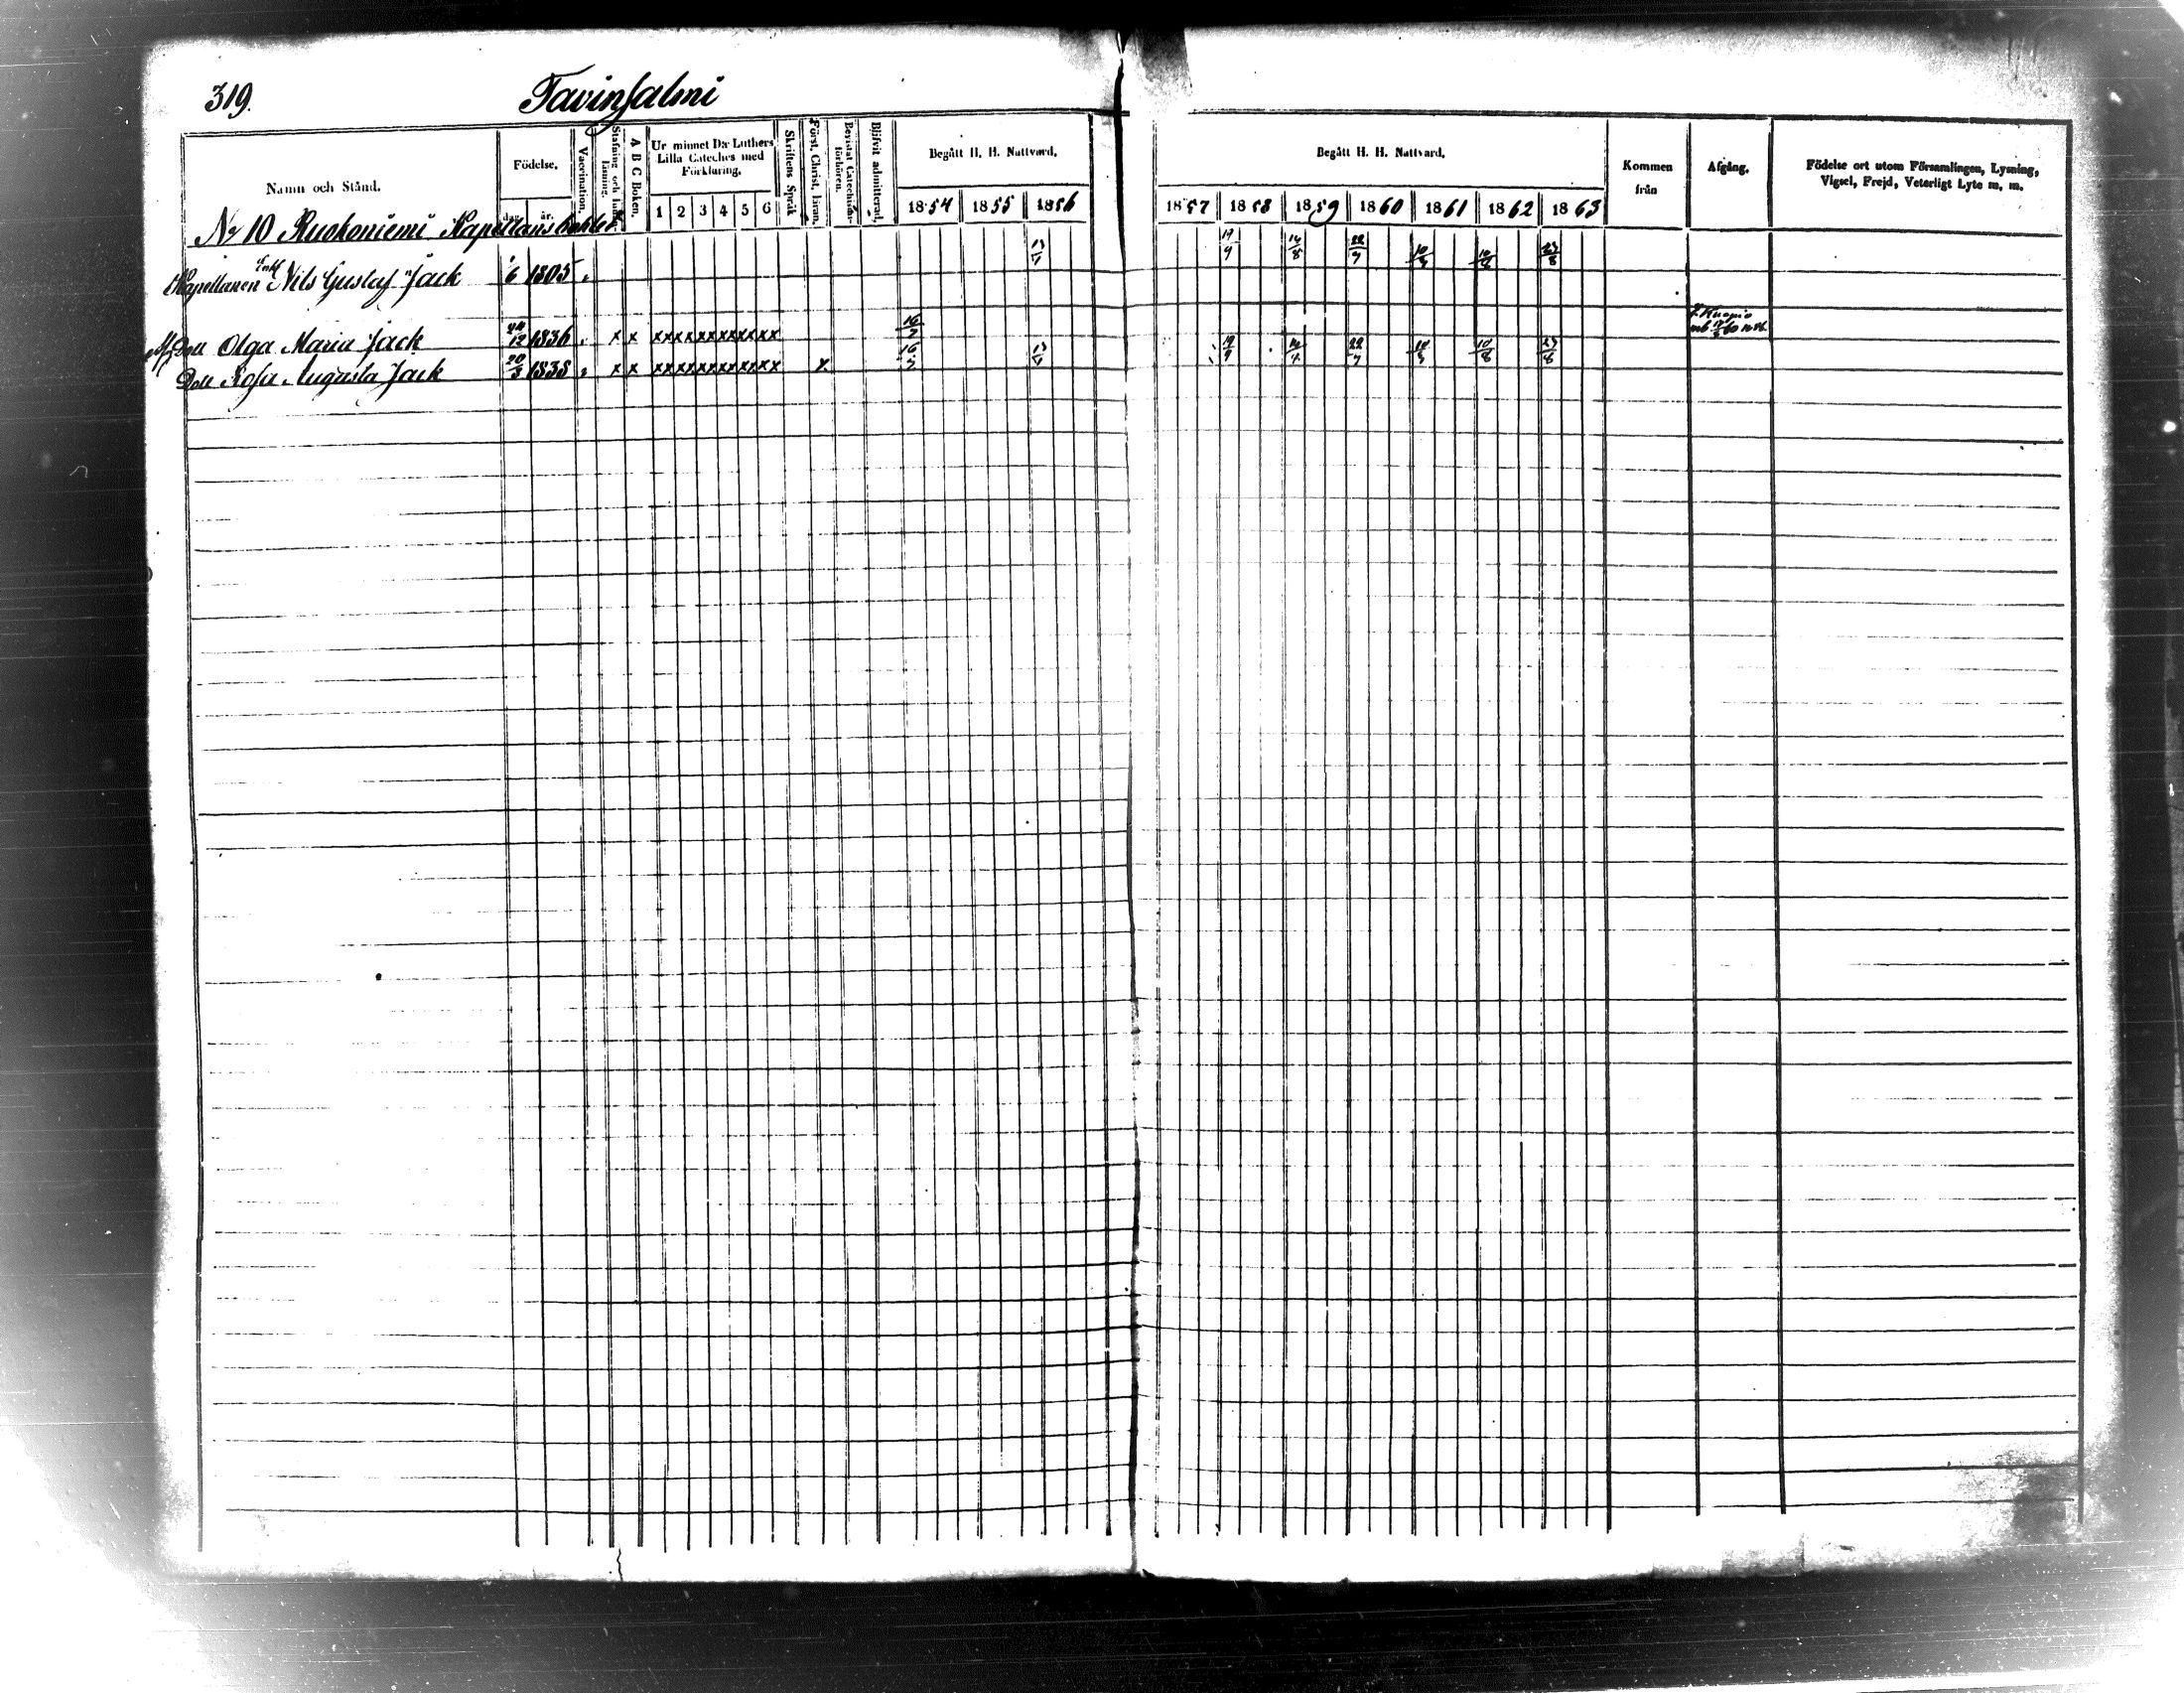 319.
Tavinsalmi
Namn och Stånd.
Födelse.
dag. år.
Vaccination.
Stafning och Innan läsning.
A B C Boken.
Ur minnet D:r Luthers Lilla Cateches med Förklaring.
1 2 3 4 5 6
Skriftens Språk
Först. Christ. läran.
Bevistat Catechismi-förhören.
Blifvit admitterad.
Begått H. H. Nattvard.
1854 1855 1856
Begått H. H. Nattvard.
1857 1858 1859 1860 1861 1862 1863
Kommen från
Afgång.
Födelse ort utom Församlingen, Lysning, Vigsel, Frejd, Veterligt Lyte m. m.
No 10 Ruokoniemi Kapellans bohlet
Kapellanen Enkl. Nils Gustaf Jack 6 1805 19/9 14/8 22/7 10/8 23/8
Dott Olga Maria Jack 24/12 1836 x x xx xx xx xx xx xx 16/7 Kuopio
Dott Rosa Augusta Jack 20/3 1838 x x xx xx xx xx xx xx x 16/7 19/9 22/7 10/8 23/8